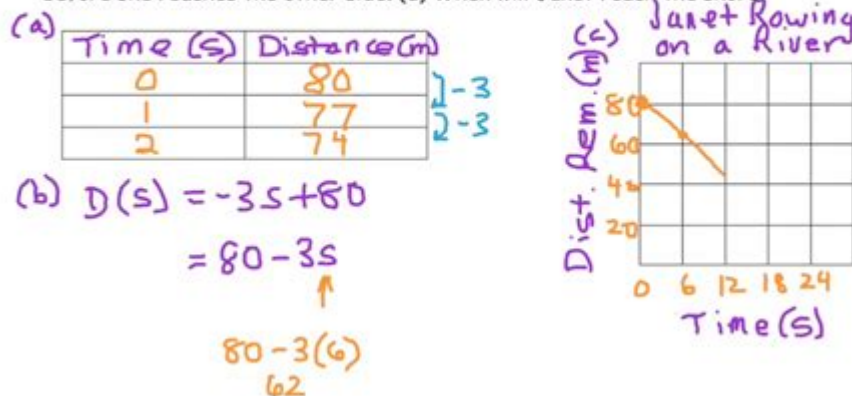 (a)
Time (S) Distance (m)
0 80
1 77
2 74
]-3
]-3
(b) D(S) = -3S+80
= 80-3S
80-3(6)
62
(c) Janet Rowing
on a River
Dist. Rem. (m)
80
60
40
20
0 6 12 18 24
Time (S)